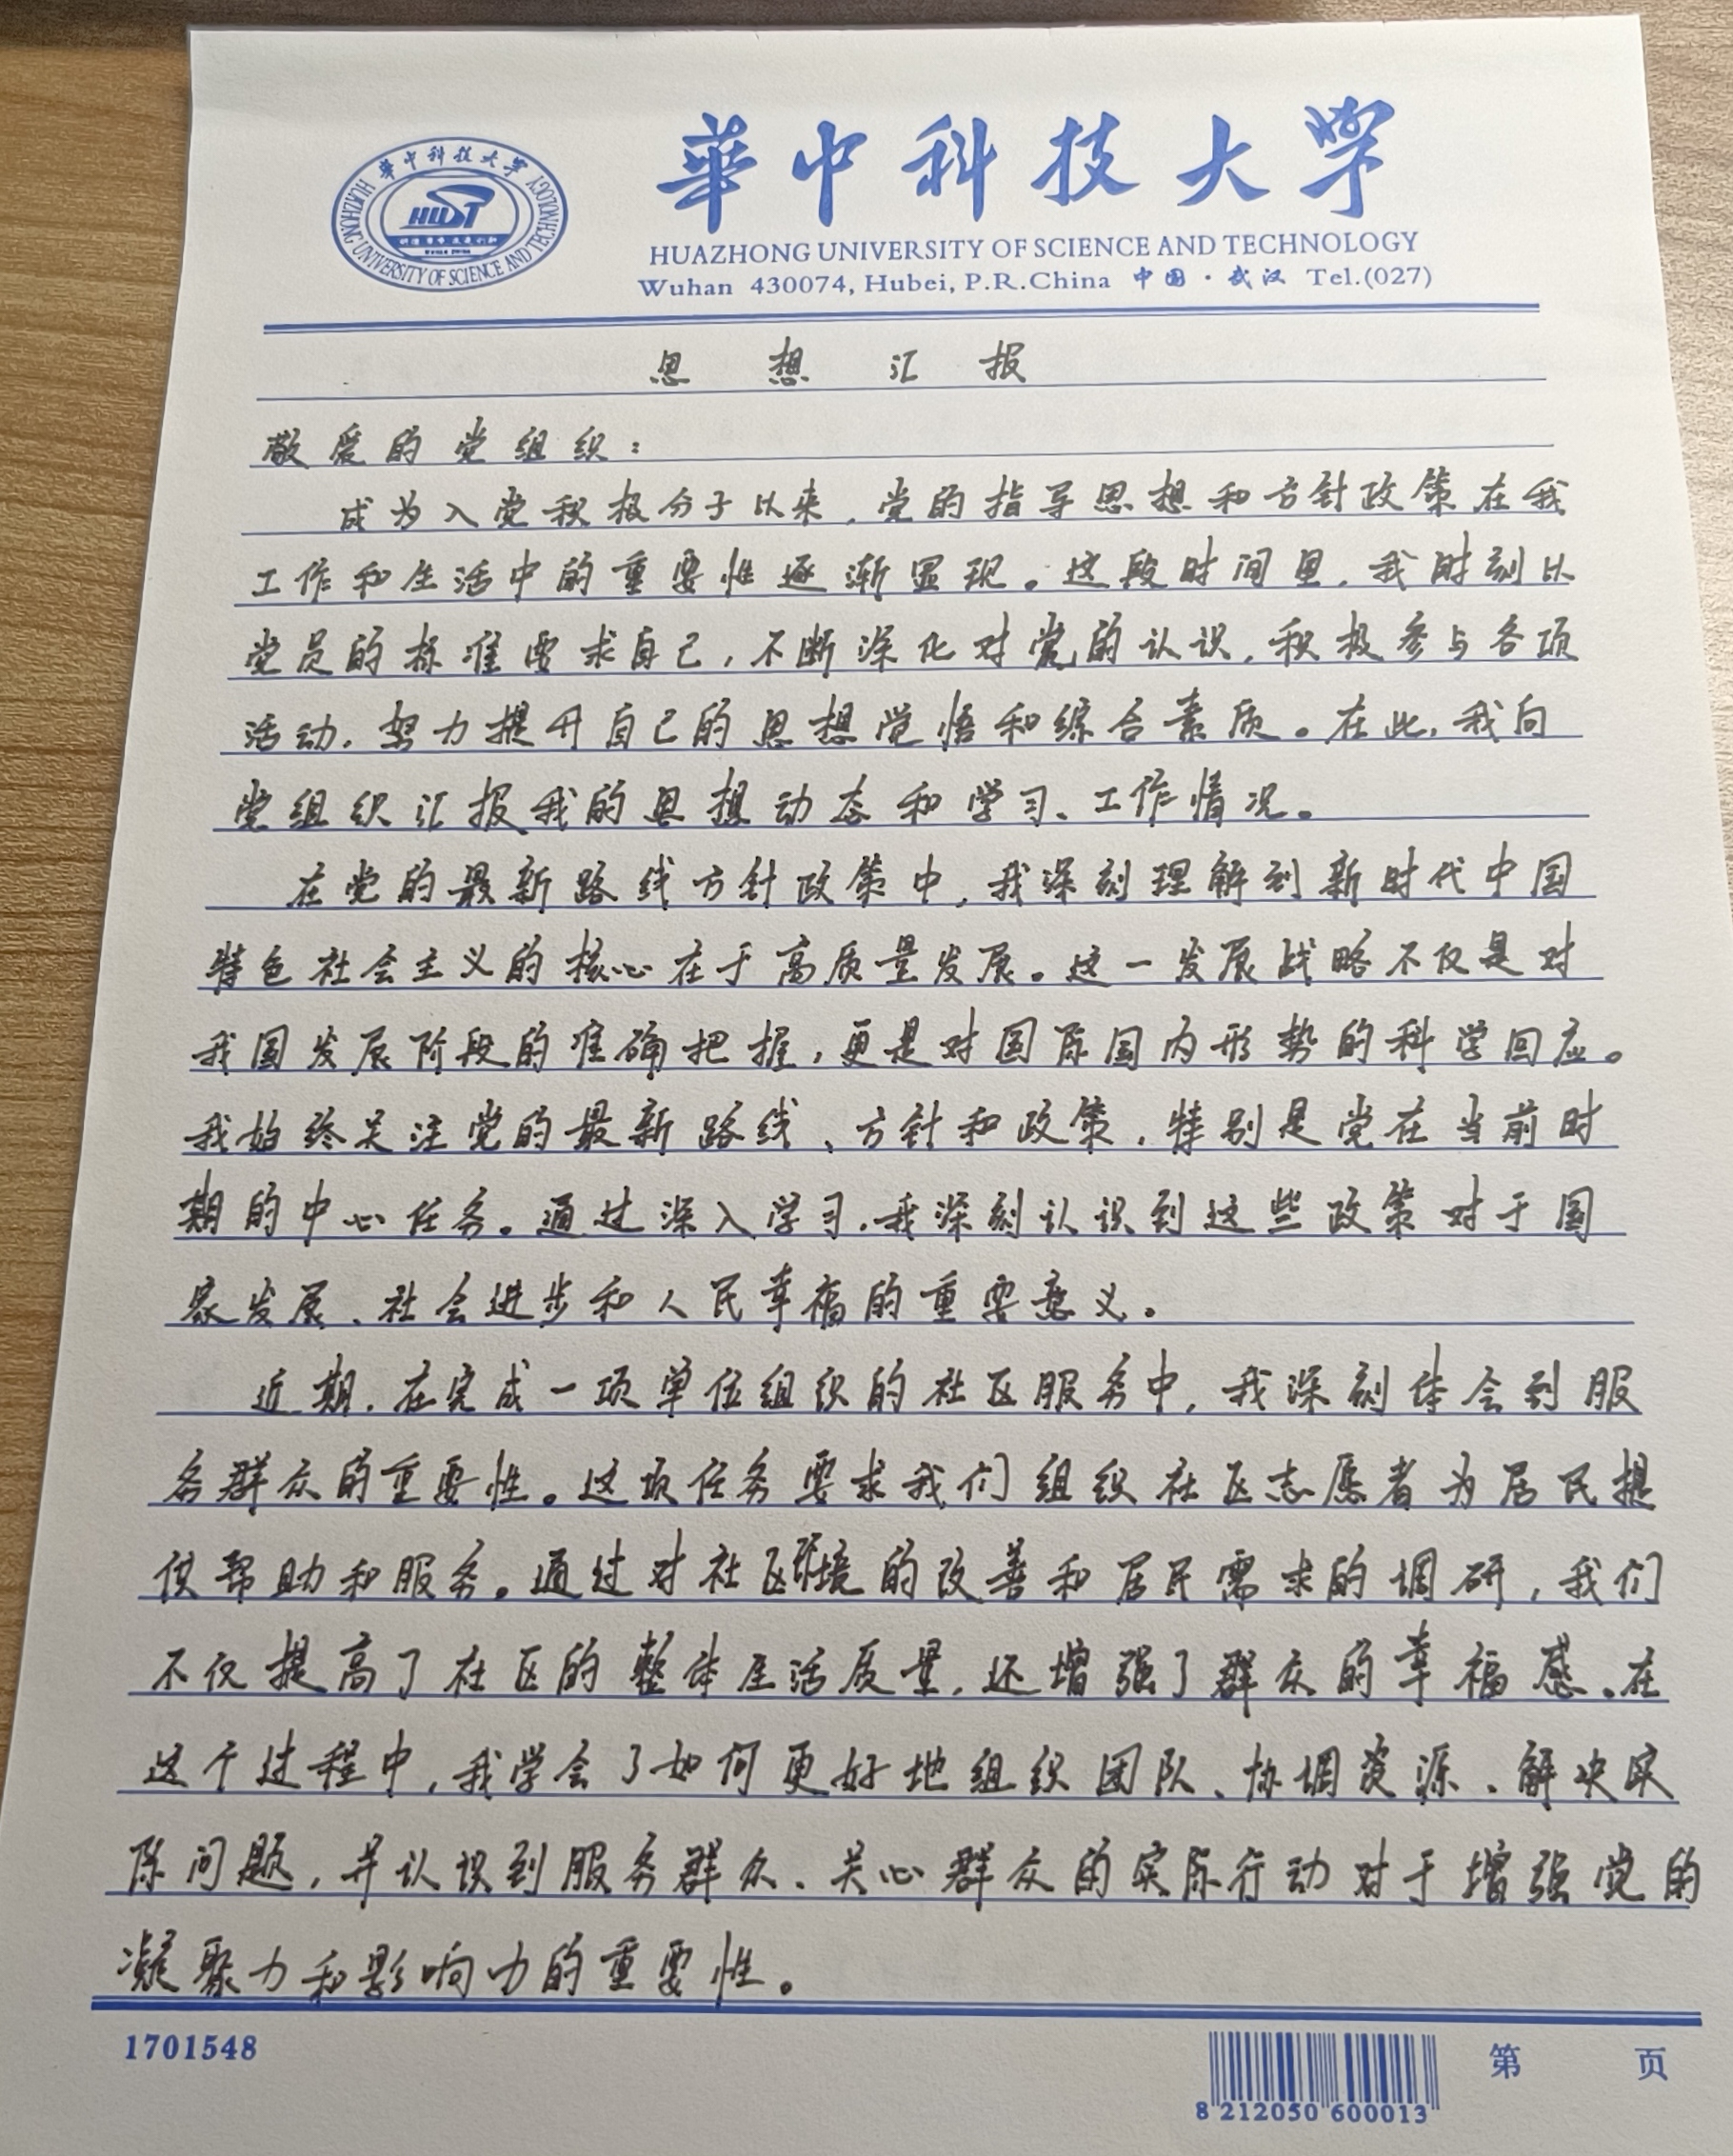 華中科技大學
HUAZHONG UNIVERSITY OF SCIENCE AND TECHNOLOGY
HUST
華中科技大學
HUAZHONG UNIVERSITY OF SCIENCE AND TECHNOLOGY
Wuhan 430074, Hubei, P.R.China 中国·武汉 Tel.(027)
思想汇报
敬爱的党组织：
成为入党积极分子以来，党的指导思想和方针政策在我
工作和生活中的重要性逐渐显现。这段时间里，我时刻以
党员的标准要求自己，不断深化对党的认识，积极参与各项
活动，努力提升自己的思想觉悟和综合素质。在此，我向
党组织汇报我的思想动态和学习、工作情况。
在党的最新路线方针政策中，我深刻理解到新时代中国
特色社会主义的核心在于高质量发展。这一发展战略不仅是对
我国发展阶段的准确把握，更是对国际国内形势的科学回应。
我始终关注党的最新路线、方针和政策，特别是党在当前时
期的中心任务。通过深入学习，我深刻认识到这些政策对于国
家发展、社会进步和人民幸福的重要意义。
近期，在完成一项单位组织的社区服务中，我深刻体会到服
务群众的重要性。这项任务要求我们组织社区志愿者为居民提
供帮助和服务。通过对社区环境的改善和居民需求的调研，我们
不仅提高了社区的整体生活质量，还增强了群众的幸福感。在
这个过程中，我学会了如何更好地组织团队、协调资源、解决实
际问题，并认识到服务群众、关心群众的实际行动对于增强党的
凝聚力和影响力的重要性。
1701548
8 212050 600013
第 页